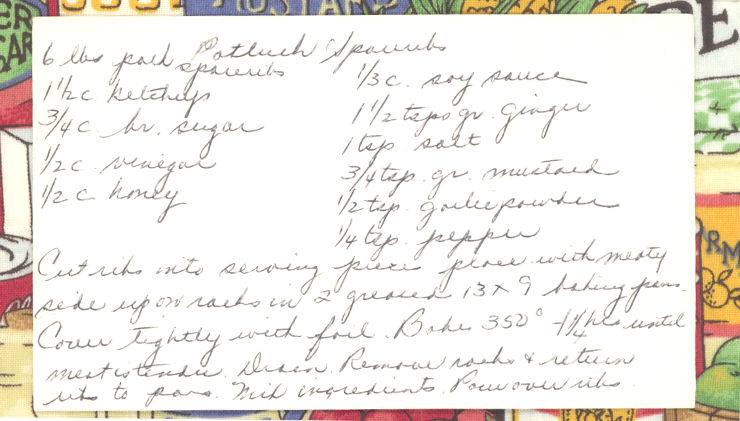 MUSTARD
Potluck Spareribs
6 lbs pork spareribs
1 1/2 c ketchup
3/4 c. br. sugar
1/2 c. vinegar
1/2 c honey
1/3 c. soy sauce
1 1/2 tsps gr. ginger
1 tsp salt
3/4 tsp. gr. mustard
1/2 tsp. garlic powder
1/4 tsp. pepper
Cut ribs into serving pieces place with meaty
side up on racks in 2 greased 13 x 9 baking pans.
Cover tightly with foil. Bake 350° 1 1/4 hrs until
meat is tender. Drain. Remove racks & return
ribs to pans. Mix ingredients. Pour over ribs.